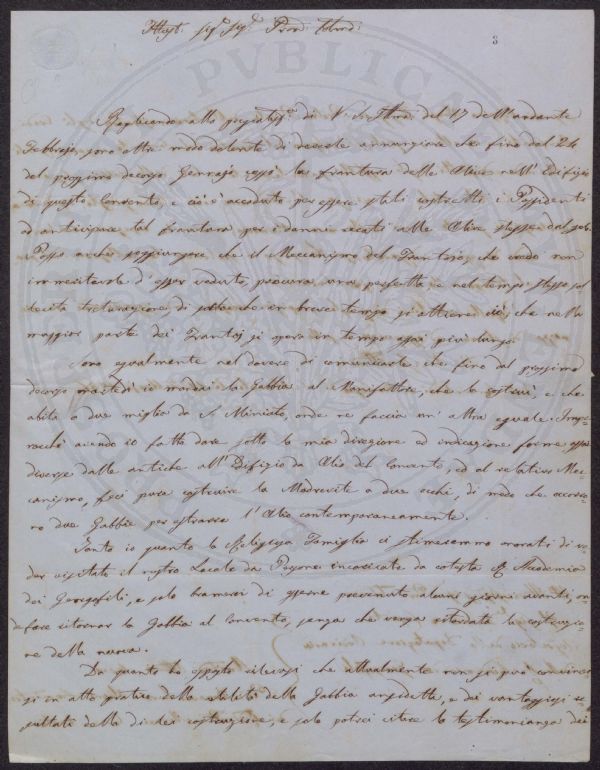 3
Replicando alla pregiatiss.ª di V. S. Ill.ma del 17 dell'andante
Febbrajo, sono oltre modo dolente di doverle annunziare che fino del 24
del prossimo decorso Gennajo cessò la frantura delle Olive nell'Edifizio
di questo Convento, e ciò è accaduto per essere stati costretti i Possidenti
ad anticipare tal frantura per i danni recati alle Olive stesse dal
Posso anche soggiungere che il Meccanismo del Frantoio, che credo non
immeritevole d'esser veduto, procura una perfetta e nel tempo stesso sol
lecita triturazione, di sorta che in breve tempo si ottiene ciò, che nella
maggior parte dei Frantoj si opera in tempo assai più lungo.
Sono egualmente nel dovere di comunicarle che fino dal prossimo
decorso martedì io mandai la Gabbia al Manifattore, che la costruì, e che
abita a due miglia da S. Miniato, onde ne faccia un'altra eguale. Impe
rocchè avendo io fatto dare sotto la mia direzione ed indicazione forme assai
diverse dalle antiche all'Edifizio da Olio del Convento, ed al relativo Mec
canismo, feci pure costruire la Madrevite a due occhi, di modo che accorro
no due Gabbie per estrarre l'Olio contemporaneamente.
Tanto io quanto la Religiosa Famiglia ci stimeremmo onorati di ve
der visitato il nostro Locale da Persone incaricate da cotesta R. Accademia
dei Georgofili, e solo bramerei di esserne prevenuto alcuni giorni avanti, on
de fare ritornar la Gabbia al Convento, senza che venga ritardata la costruzio
ne della nuova.
Da quanto ho esposto rilevasi che attualmente non si può convincer
si in atto pratico della utilità della Gabbia anzidetta, e dei vantaggiosi re
sultati della di lei costruzione, e solo potrei citare la testimonianza dei